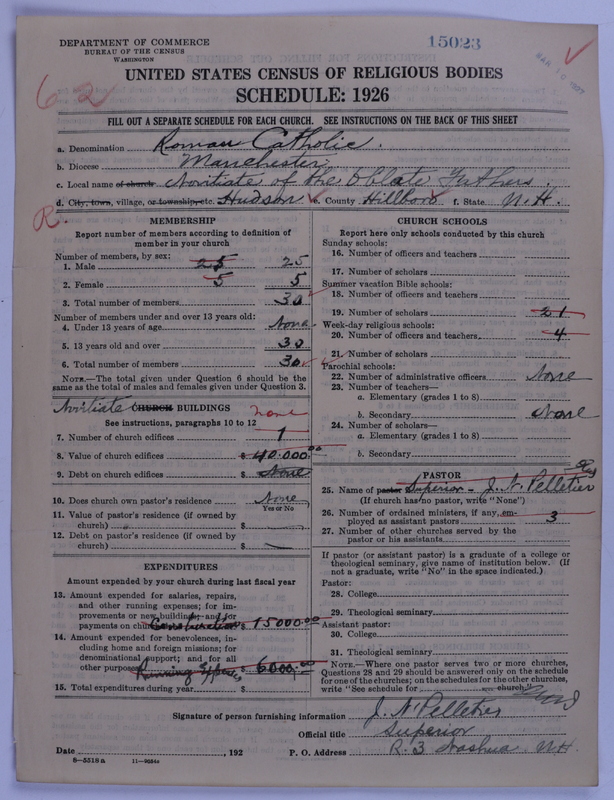 DEPARTMENT OF COMMERCE
BUREAU OF THE CENSUS
WASHINGTON
15023
62
UNITED STATES CENSUS OF RELIGIOUS BODIES
SCHEDULE: 1926
FILL OUT A SEPARATE SCHEDULE FOR EACH CHURCH. SEE INSTRUCTIONS ON THE BACK OF THIS SHEET
a. Denomination Roman Catholic.
b. Diocese Manchester
c. Local name of church Novitiate of the Oblate Fathers.
d. City, town, village, or township, etc. Hudson e. County Hillboro f. State N.H.
R.
MEMBERSHIP
Report number of members according to definition of
member in your church
Number of members, by sex:
1. Male 25 25
2. Female 5 5
3. Total number of members 30
Number of members under and over 13 years old:
4. Under 13 years of age None
5. 13 years old and over 30
6. Total number of members 30
NOTE.—The total given under Question 6 should be the
same as the total of males and females given under Question 3.
Novitiate CHURCH BUILDINGS none
See instructions, paragraphs 10 to 12
7. Number of church edifices 1
8. Value of church edifices $ 40.000.00
9. Debt on church edifices $ None
10. Does church own pastor's residence None
Yes or No
11. Value of pastor's residence (if owned by
church) $
12. Debt on pastor's residence (if owned by
church) $
EXPENDITURES
Amount expended by your church during last fiscal year
13. Amount expended for salaries, repairs,
and other running expenses; for im-
provements or new buildings; and for
payments on church Construction $ 15000.00
14. Amount expended for benevolences, in-
cluding home and foreign missions; for
denominational support; and for all
other purposes Running Expenses $ 6000.00
15. Total expenditures during year $
CHURCH SCHOOLS
Report here only schools conducted by this church
Sunday schools:
16. Number of officers and teachers
17. Number of scholars
Summer vacation Bible schools:
18. Number of officers and teachers
19. Number of scholars 21
Week-day religious schools:
20. Number of officers and teachers 4
21. Number of scholars
Parochial schools:
22. Number of administrative officers None
23. Number of teachers—
a. Elementary (grades 1 to 8)
b. Secondary None
24. Number of scholars—
a. Elementary (grades 1 to 8)
b. Secondary
PASTOR
25. Name of pastor Superior - J. N. Pelletier
(If church has no pastor, write "None")
26. Number of ordained ministers, if any, em-
ployed as assistant pastors 3
27. Number of other churches served by the
pastor or his assistants
If pastor (or assistant pastor) is a graduate of a college or
theological seminary, give name of institution below. (If
not a graduate, write "No" in the space indicated.)
Pastor:
28. College
29. Theological seminary
Assistant pastor:
30. College
31. Theological seminary
NOTE.—Where one pastor serves two or more churches,
Questions 28 and 29 should be answered only on the schedule
for one of the churches; on the schedules for the other churches,
write "See schedule for church."
Signature of person furnishing information J. N. Pelletier
Official title Superior
Date , 192 P. O. Address R. 3 Nashua N.H.
8—5518a 11—9034a